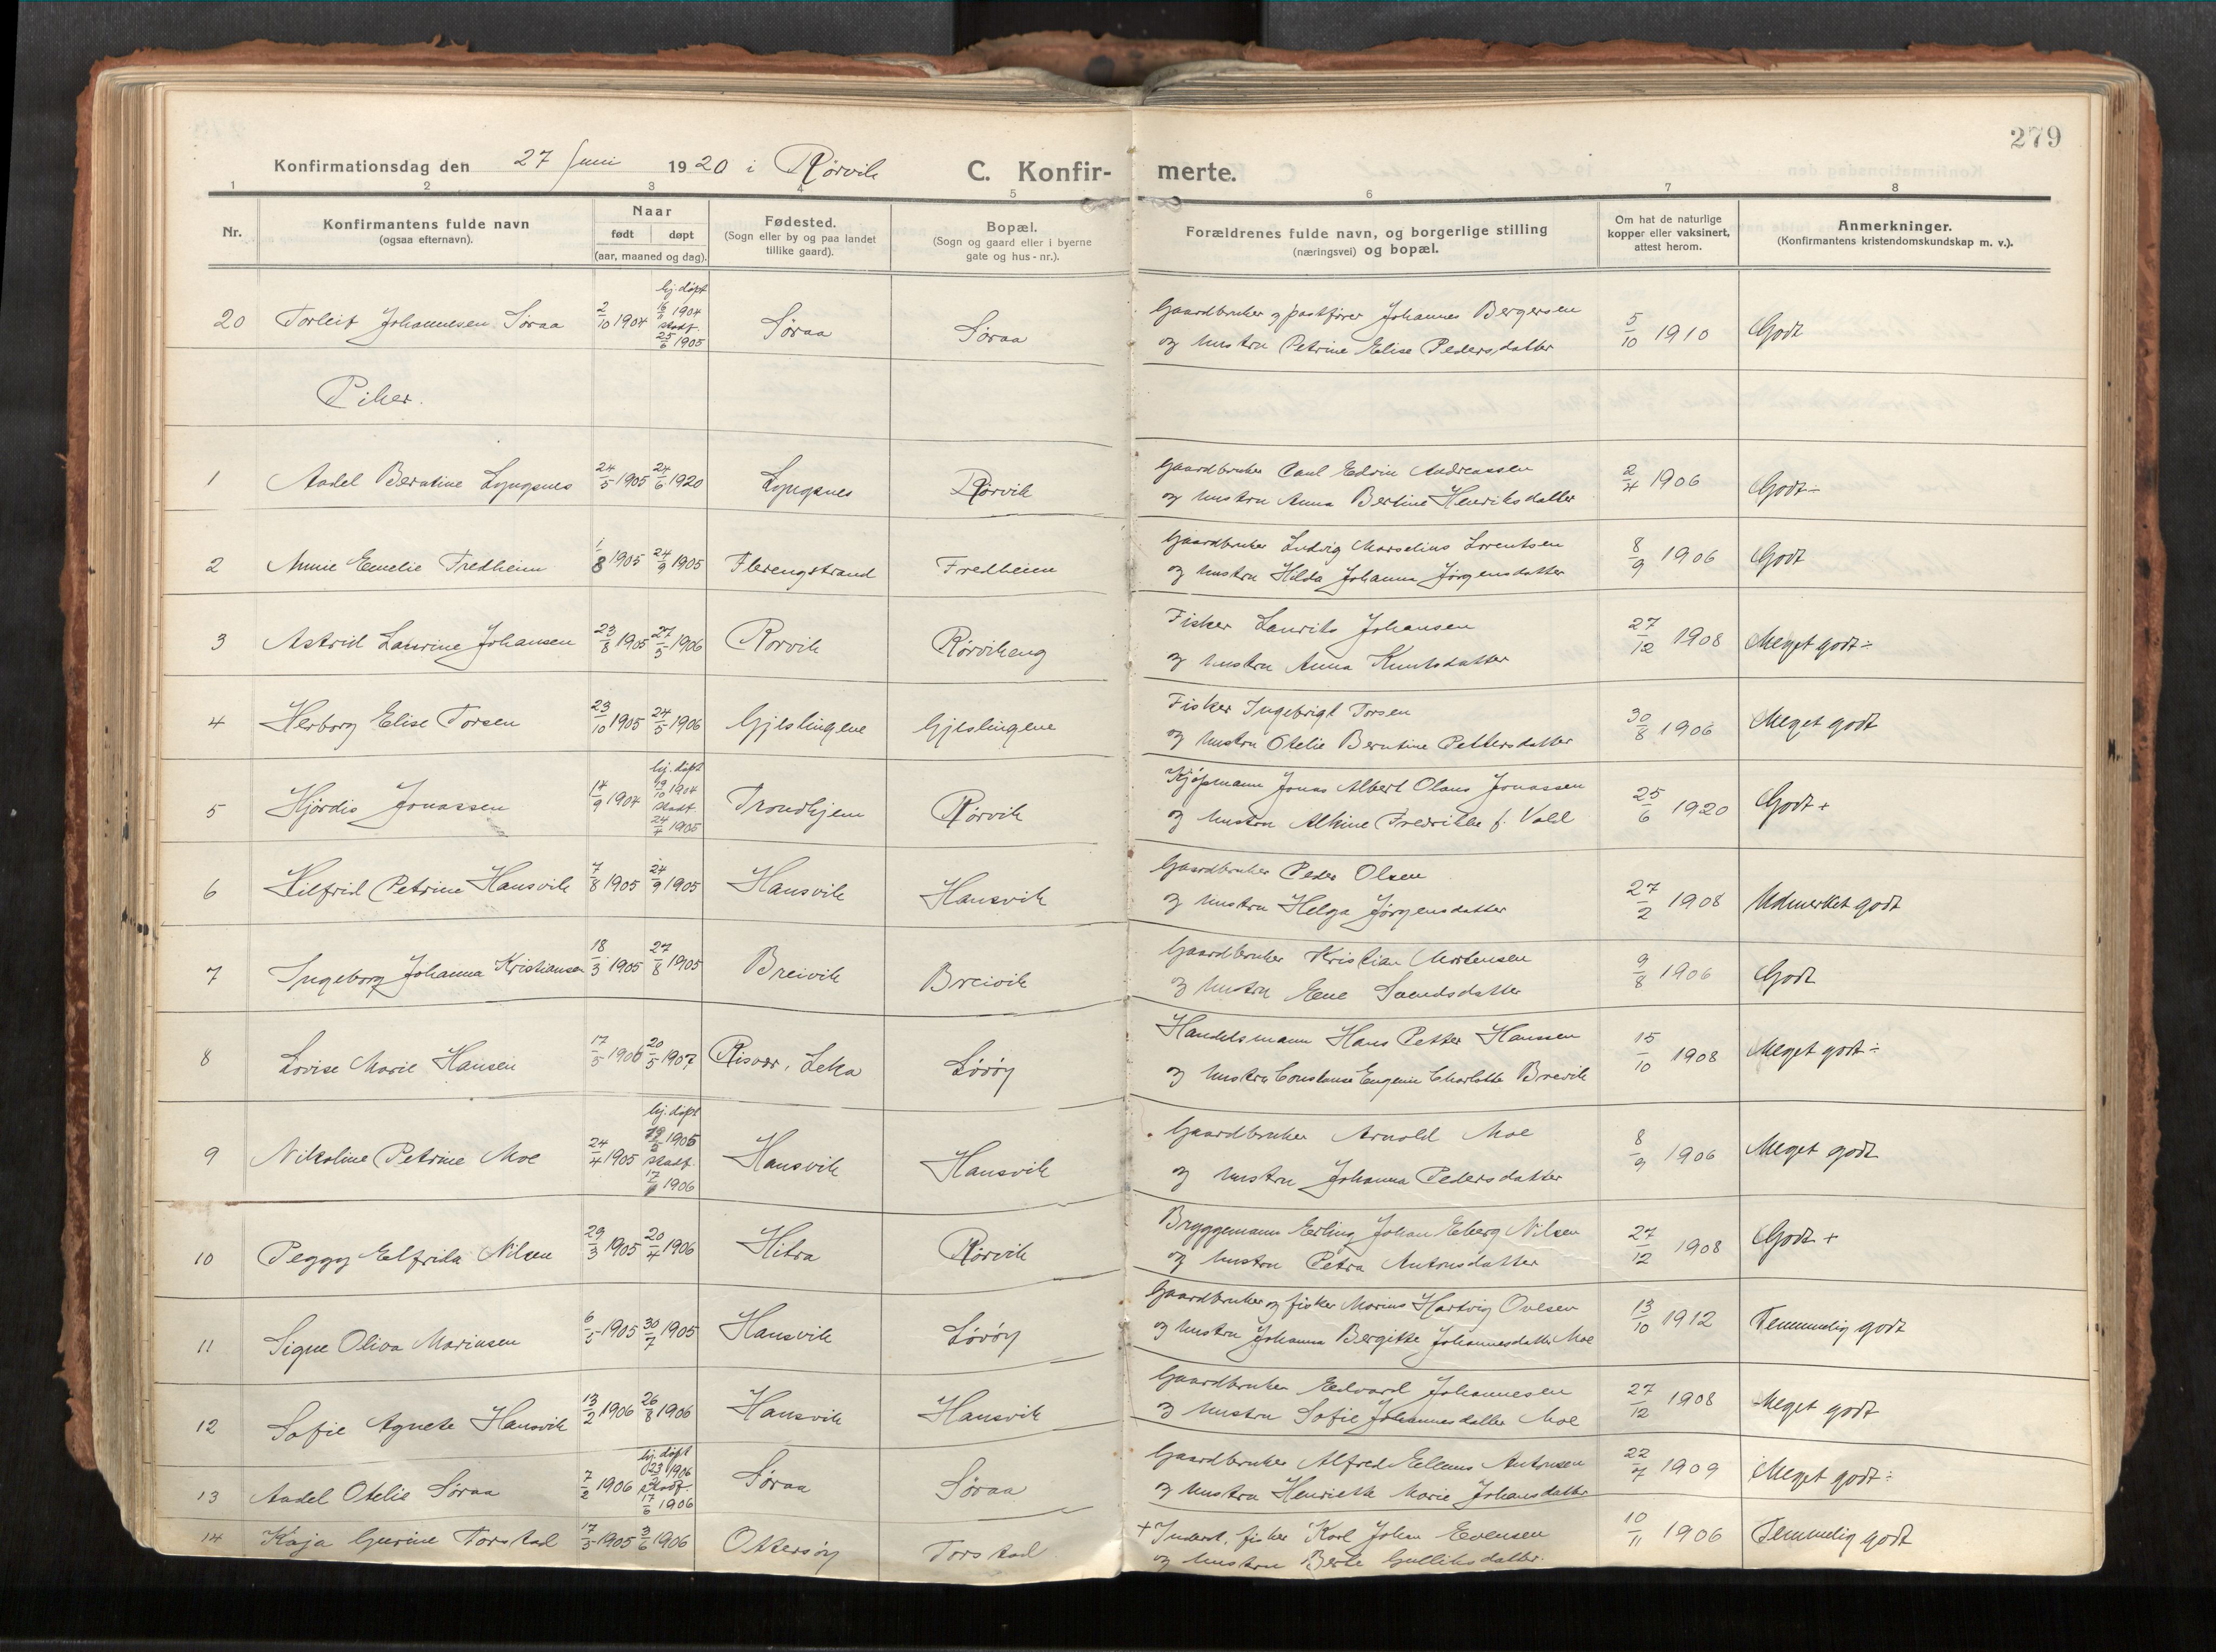 279
Konfirmationsdag den 27 Juni 1920 i Rørvik C. Konfir- merte.
1 2 3 4 5 6 7 8
Nr. Konfirmantens fulde navn (ogsaa efternavn). Naar født døpt (aar, maaned og dag). Fødested. (Sogn eller by og paa landet tillike gaard). Bopæl. (Sogn og gaard eller i byerne gate og hus-nr.). Forældrenes fulde navn, og borgerlige stilling (næringsvei) og bopæl. Om hat de naturlige kopper eller vaksinert, attest herom. Anmerkninger. (Konfirmantens kristendomskundskap m. v.).
20 Torleif Johannesen Søraa 2/10 1904 hj. døpt 16/11 1904 stadf. 25/6 1905 Søraa Søraa Gaardbruker og postfører Johannes Bergersen
og hustru Petrine Elise Pedersdatter 5/10 1910 Godt
Piker.
1 Aadel Berntine Lyngsnes 24/5 1905 24/6 1920 Lyngsnes Rørvik Gaardbruker Paul Edvin Andreassen
og hustru Anna Bertine Henriksdatter 2/4 1906 Godt-
2 Annie Emelie Fredheim 1/8 1905 24/9 1905 Flerengstrand Fredheim Gaardbruker Ludvig Marselius Lorentsen
og hustru Hilda Johanna Jørgensdatter 8/9 1906 Godt
3 Astrid Laurine Johansen 23/8 1905 27/5 1906 Rørvik Rørvikeng Fisker Laurits Johansen
og hustru Anna Knutsdatter 27/12 1908 Meget godt÷
4 Herborg Elise Torsen 23/10 1905 24/5 1906 Gjeslingene Gjeslingene Fisker Ingebrigt Torsen
og hustru Otelie Berntine Pettersdatter 30/8 1906 Meget godt
5 Hjördis Jonassen 14/9 1904 hj. døpt 19/10 1904 stadf. 24/7 1905 Trondhjem Rørvik Kjøpmann Jonas Albert Olaus Jonassen
og hustru Alkine Fredrikke f. Vold 25/6 1920 Godt+
6 Hilfrid Petrine Hansvik 7/8 1905 24/9 1905 Hansvik Hansvik Gaardbruker Peder Olsen
og hustru Helga Jørgensdatter 27/2 1908 Udmerket godt
7 Ingeborg Johanna Kristiansen 18/3 1905 27/8 1905 Breivik Breivik Gaardbruker Kristian Mortensen
og hustru Ene Svendsdatter 9/8 1906 Godt
8 Lovise Marie Hansen 17/5 1906 20/5 1907 Risvær, Leka Lövöy Handelsmann Hans Petter Hanssen
og hustru Constanse Eugenie Charlotte Brevik 15/10 1908 Meget godt÷
9 Nikoline Petrine Moe 24/4 1905 hj. døpt 1905 stadf. 17 1906 Hansvik Hansvik Gaardbruker Arnold Moe
og hustru Johanna Pedersdatter 8/9 1906 Meget godt
10 Peggy Elfrida Nilsen 29/3 1905 20/4 1906 Hitra Rørvik Bryggemann Erling Johan Eberg Nilsen
og hustru Petra Antonsdatter 27/12 1908 Godt +
11 Signe Oliva Mariusen 6/5 1905 30/7 1905 Hansvik Lövöy Gaardbruker og fisker Marius Hartvig Ovesen
og hustru Johanna Bergitte Johannesdatter Moe 13/10 1912 Temmelig godt
12 Sofie Agnete Hansvik 13/2 1906 26/8 1906 Hansvik Hansvik Gaardbruker Edvard Johannesen
og hustru Sofie Johannesdatter Moe 27/12 1908 Meget godt
13 Aadel Otelie Søraa 7/2 1906 hj. døpt 23 1906 Stadf. 17/6 1906 Søraa Søraa Gaardbruker Alfred Elenus Antonsen
og hustru Henriette Marie Johansdatter 22/7 1909 Meget godt÷
14 Kaja Gurine Torstad 17/5 1905 3/6 1906 Ottersøy Torstad + Inderst, fisker Karl Johan Evensen
og hustru Berte Gulliksdatter. 10/11 1906 Temmelig godt